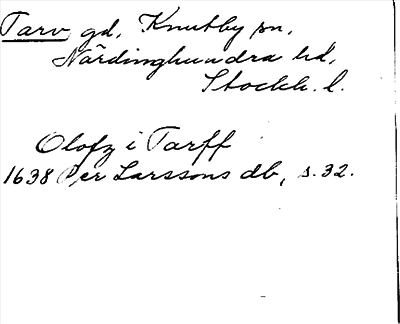 Tarv gd, Knutby sn,
Närdinghundra hd,
Stockh. l.
Olofz i Tarff
1638 Per Larssons db, s. 32.